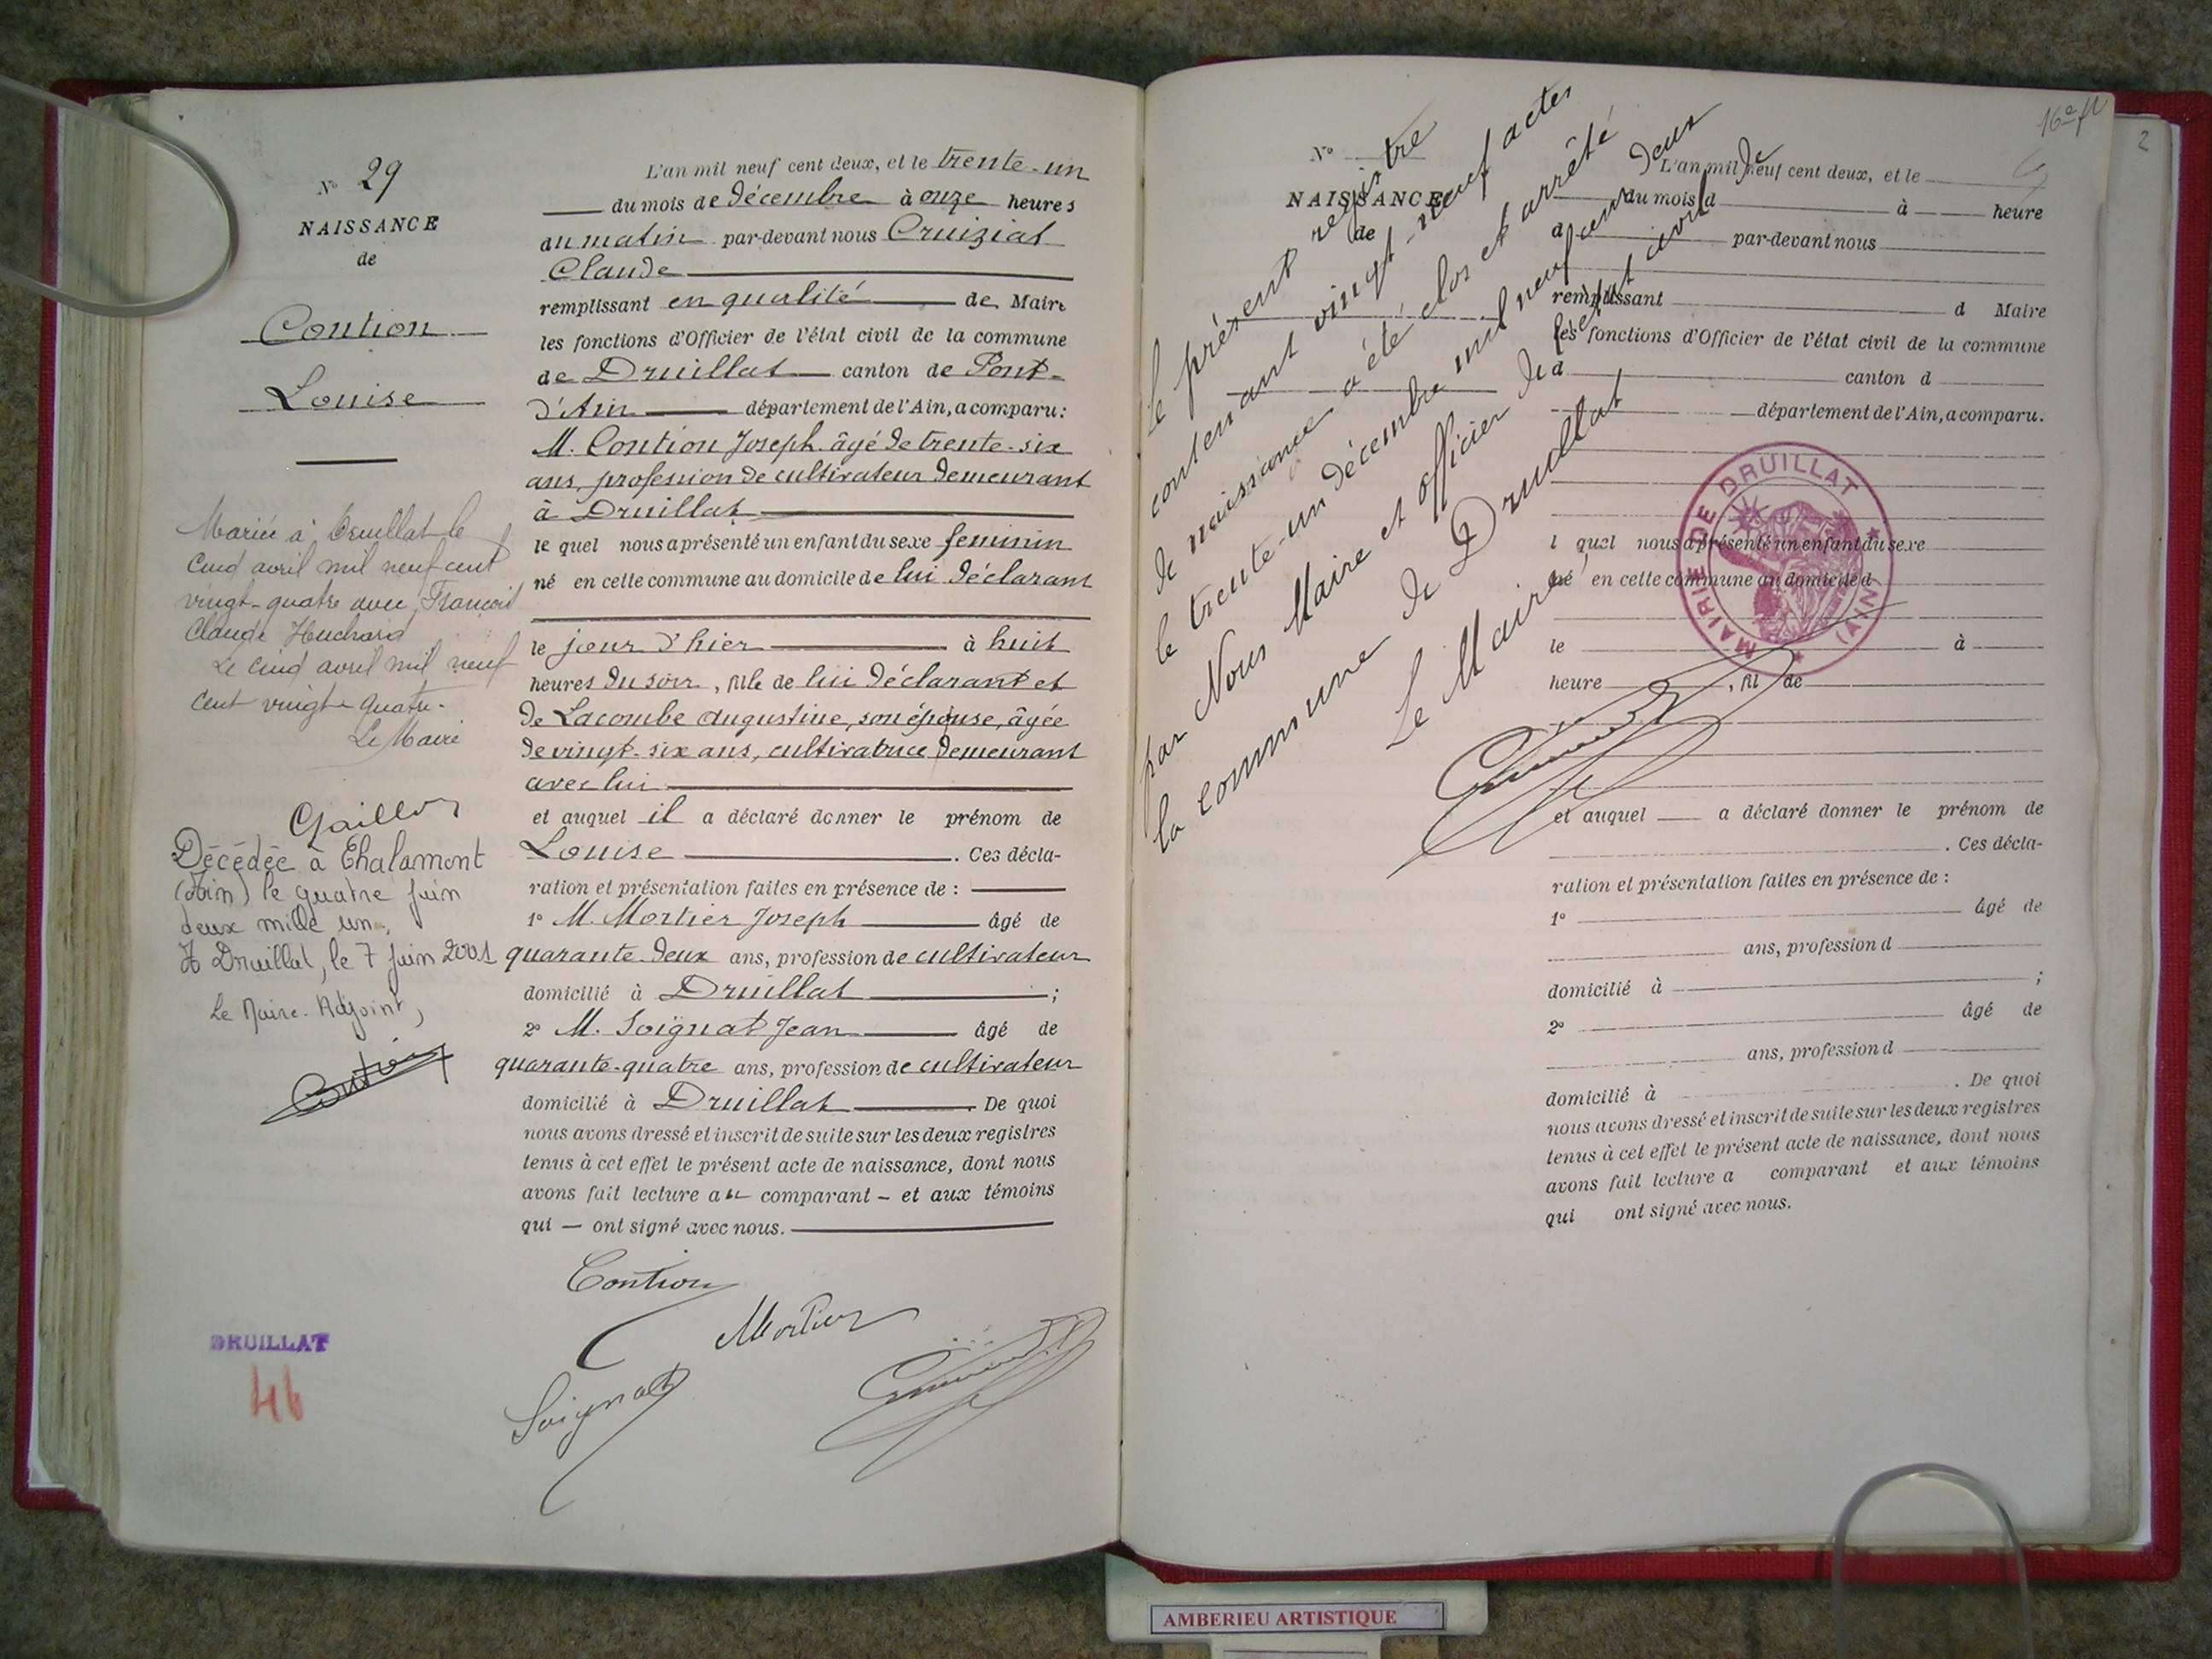 N° 29
NAISSANCE
de
Contion
Louise
Mariée à Druillat le
cinq avril mil neuf cent
vingt-quatre avec François
Claude Huchard
Le cinq avril mil neuf
cent vingt-quatre.
Le Maire
Décédée à Chalamont
(Ain) le quatre juin
deux mille un.
A Druillat, le 7 juin 2001
Le Maire-Adjoint,
Contion
DRUILLAT
46
L'an mil neuf cent deux, et le trente-un
du mois de décembre à onze heures
du matin par-devant nous Cruiziat
Claude
remplissant en qualité de Maire
les fonctions d'Officier de l'état civil de la commune
de Druillat canton de Pont-
d'Ain département de l'Ain, a comparu:
M. Contion Joseph âgé de trente-six
ans, profession de cultivateur demeurant
à Druillat
le quel nous a présenté un enfant du sexe féminin
né en cette commune au domicile de lui déclarant
le jour d'hier à huit
heures du soir, fille de lui déclarant et
de Lacombe Augustine, son épouse, âgée
de vingt-six ans, cultivatrice demeurant
avec lui
et auquel il a déclaré donner le prénom de
Louise. Ces décla-
ration et présentation faites en présence de :
1° M. Mortier Joseph âgé de
quarante-deux ans, profession de cultivateur
domicilié à Druillat ;
2° M. Soignat Jean âgé de
quarante-quatre ans, profession de cultivateur
domicilié à Druillat. De quoi
nous avons dressé et inscrit de suite sur les deux registres
tenus à cet effet le présent acte de naissance, dont nous
avons fait lecture au comparant - et aux témoins
qui — ont signé avec nous.
Contion
Mortier
Soignat
16e fl
2
Le présent registre
contenant vingt-neuf actes
de naissance a été clos et arrêté
le trente-un décembre mil neuf cent deux
par Nous Maire et officier de l'état civil de
la commune de Druillat
Le Maire
N°
NAISSANCE
de
L'an mil neuf cent deux, et le
du mois d à heure
d par-devant nous
remplissant d Maire
les fonctions d'Officier de l'état civil de la commune
d canton d
département de l'Ain, a comparu.
MAIRIE DE DRUILLAT
(AIN)
l quel nous a présenté un enfant du sexe
né en cette commune au domicile d
le à
heure , fil de
et auquel a déclaré donner le prénom de
. Ces décla-
ration et présentation faites en présence de :
1° âgé de
ans, profession d
domicilié à ;
2° âgé de
ans, profession d
domicilié à . De quoi
nous avons dressé et inscrit de suite sur les deux registres
tenus à cet effet le présent acte de naissance, dont nous
avons fait lecture a comparant et aux témoins
qui ont signé avec nous.
AMBERIEU ARTISTIQUE